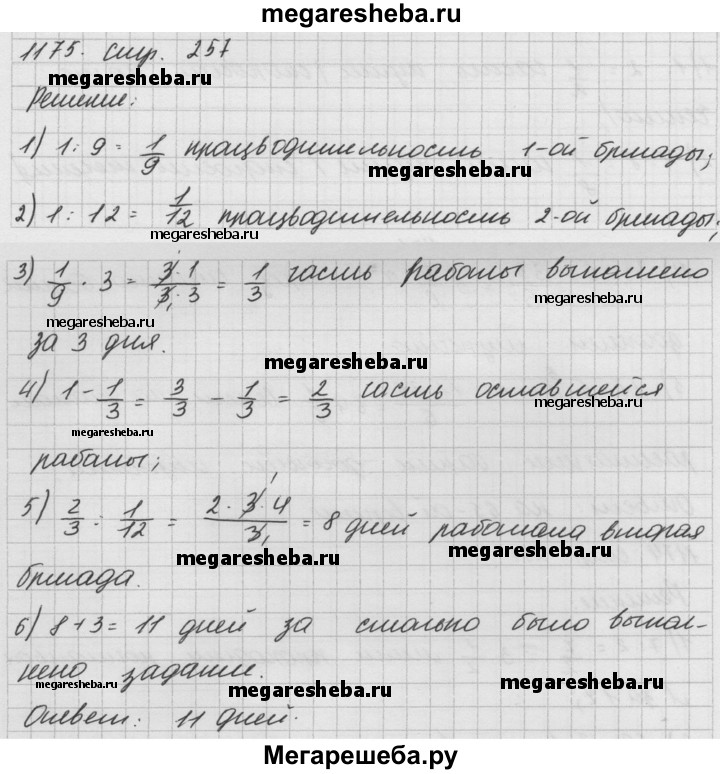 megaresheba.ru
1175. стр. 257
megaresheba.ru
Решение:
megaresheba.ru
1) 1 : 9 = 1/9 производительность 1-ой бригады;
megaresheba.ru
2) 1 : 12 = 1/12 производительность 2-ой бригады;
megaresheba.ru
3) 1/9 · 3 = 3·1/3·3 = 1/3 часть работы выполнено
megaresheba.ru megaresheba.ru
за 3 дня.
megaresheba.ru
4) 1 - 1/3 = 3/3 - 1/3 = 2/3 часть оставшейся
megaresheba.ru megaresheba.ru
работы;
5) 2/3 : 1/12 = 2·3·4/3 = 8 дней работала вторая
megaresheba.ru megaresheba.ru
бригада.
6) 8 + 3 = 11 дней за столько было выпол-
нено задание.
megaresheba.ru megaresheba.ru megaresheba.ru
Ответ: 11 дней.
Мегарешеба.ру